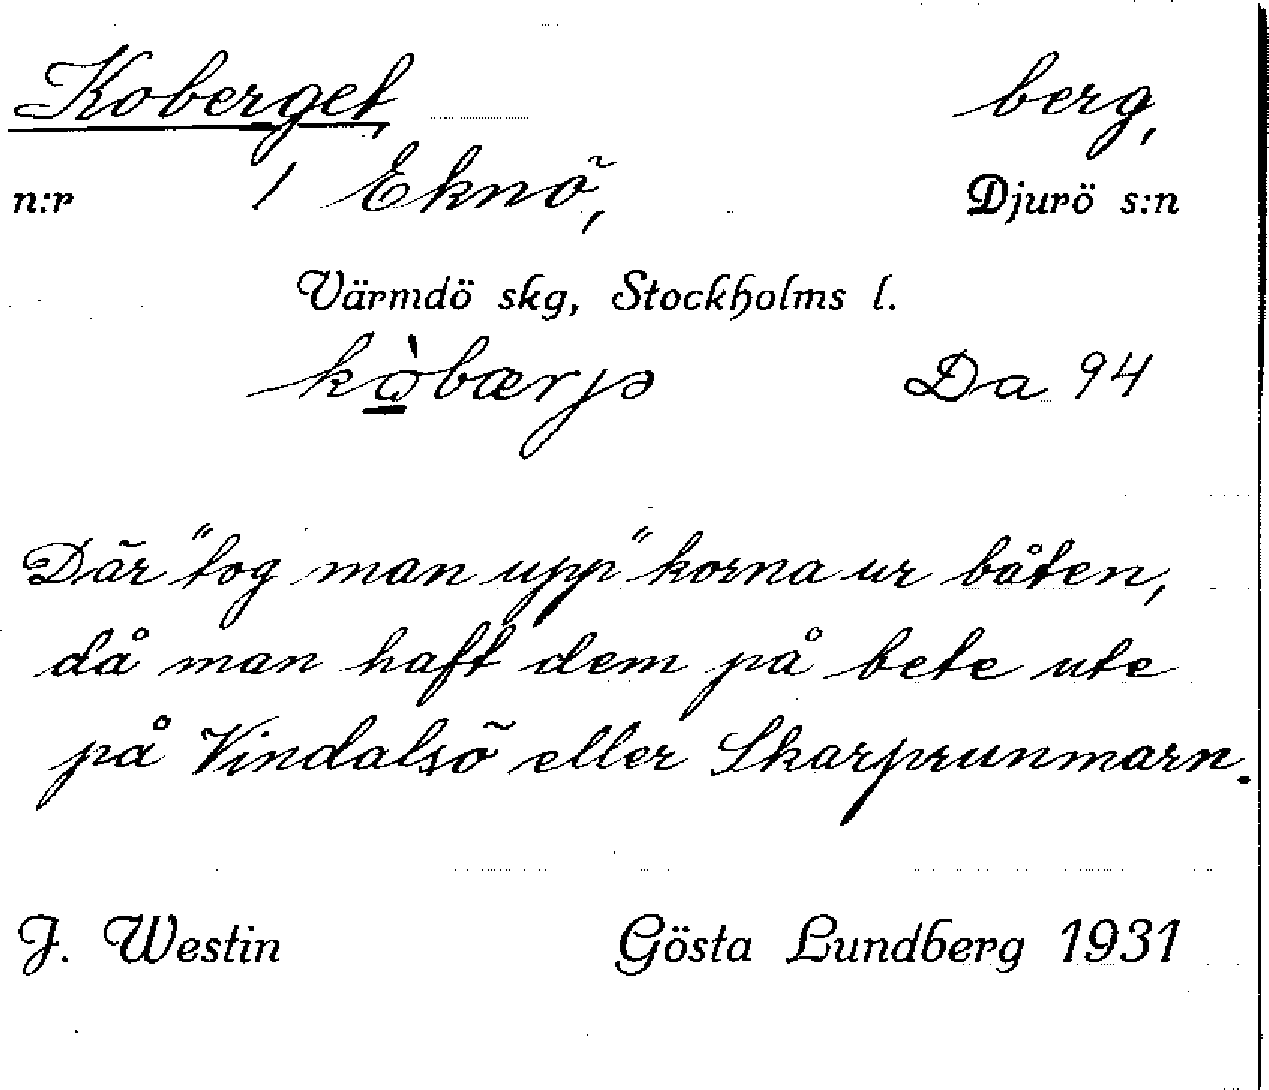 Koberget, berg,
n:r 1 Eknö, Djurö s:n
Värmdö skg, Stockholms l.
Da 94
Där "tog man upp" korna ur båten,
då man haft dem på bete ute
på Vindalsö eller Skarprunmarn.
J. Westin Gösta Lundberg 1931